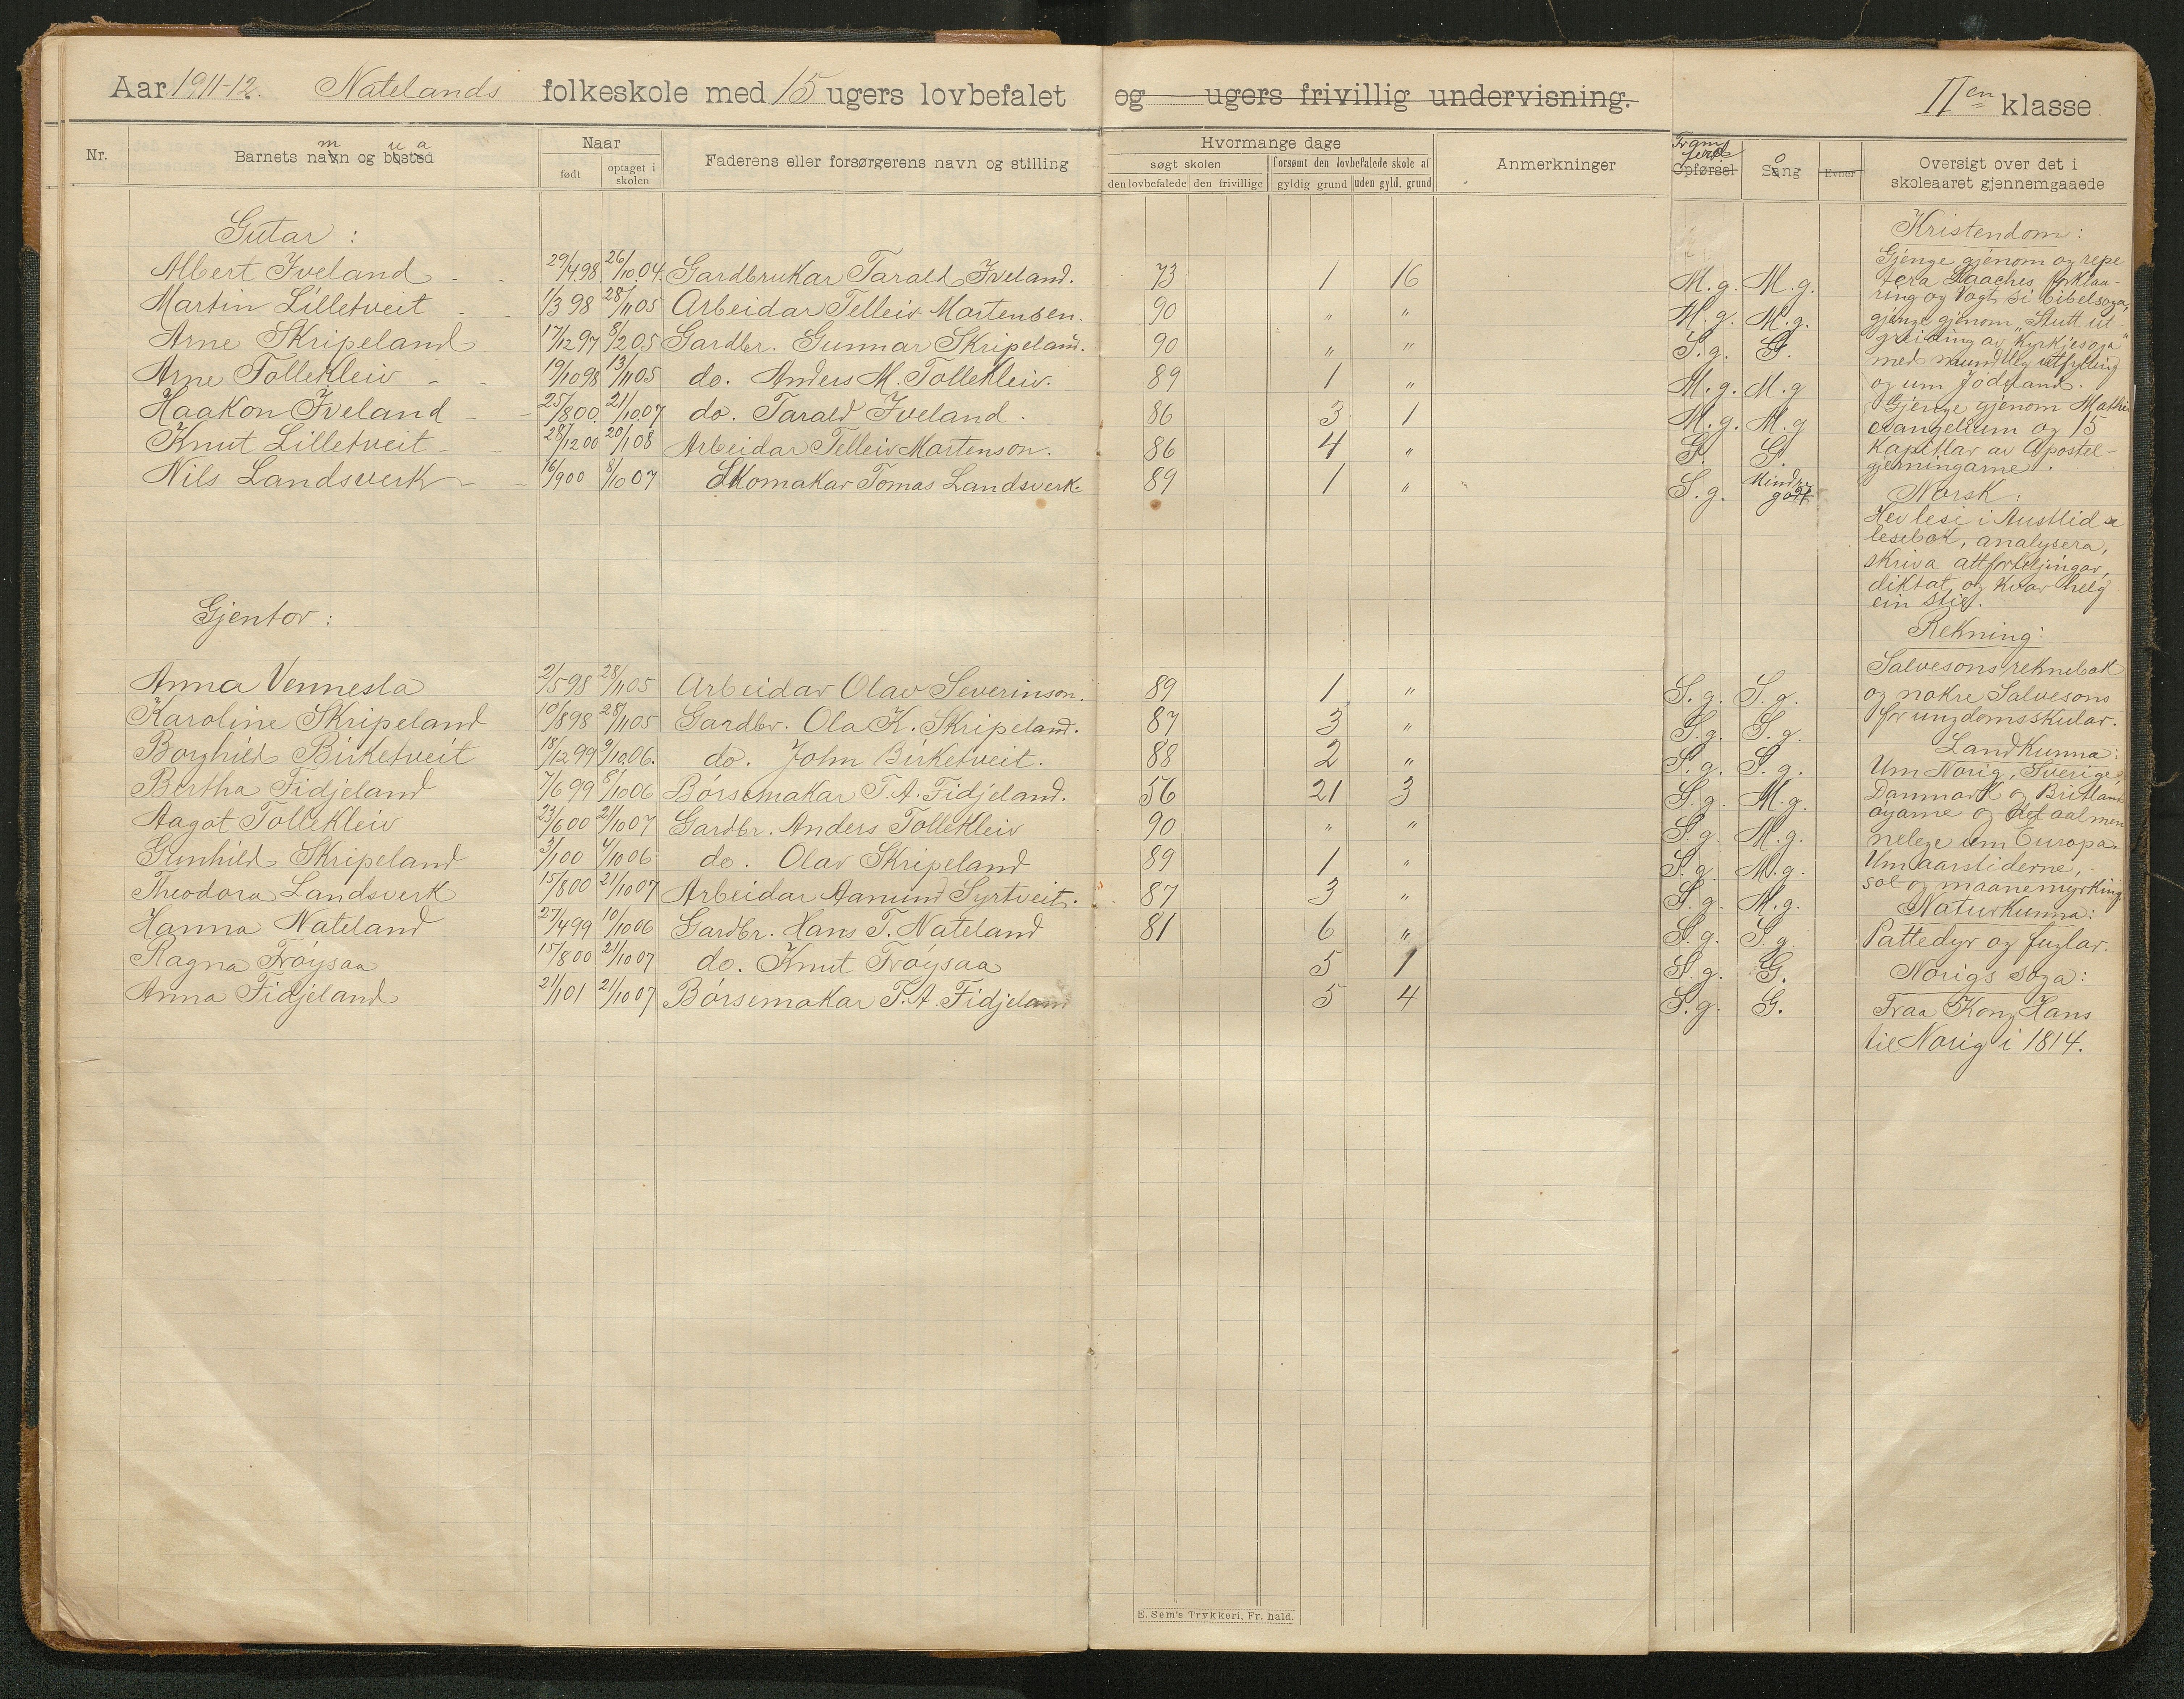 Aar 1911-12. Natelands folkeskole med 15 ugers lovbefalet og ugers frivillig undervisning. II en klasse.
Nr.
Barnets navn og bosted
m u a
Naar
født
optaget i skolen
Faderens eller forsørgerens navn og stilling
Hvormange dage
søgt skolen
forsømt den lovbefalede skole af
den lovbefalede
den frivillige
gyldig grund
uden gyld. grund
Anmerkninger
Framferd
Opførsel
o
Sang
Evner
Oversigt over det i
skoleaaret gjennemgaaede
Gutar:
Albert Iveland 29/4 98. 26/10 04. Gardbrukar Tarald Iveland. 73 1 16 M.g. M.g.
Martin Lilletveit 1/3 98 28/11 05 Arbeidar Telleiv Martensen. 90 " " M.g. M.g.
Arne Skripeland 17/12 97 8/2 05 Gardbr. Gunnar Skripeland. 90 " " S.g. G.
Arne Tollekleiv 19/10 98 13/11 05 do. Anders M. Tollekleiv. 89 1 " M.g. M.g
Haakon Iveland 25/8 00. 21/10 07 do. Tarald Iveland. 86 3 1 M.g. M.g
Knut Lilletveit 28/12 00 20/1 08 Arbeidar Telleiv Martenson. 86 4 " G. G.
Nils Landsverk 16/9 00 8/10 07 Skomakar Tomas Landsverk. 89 1 " S.g. Mindre godt
Gjentor:
Anna Vennesla 2/5 98 28/11 05 Arbeidar Olav Severinson. 89 1 " S.g. S.g.
Karoline Skripeland 10/8 98 28/11 05 Gardbr. Ola K. Skripeland. 87 3 " S.g. S.g.
Borghild Birketveit 18/12 99 9/10 06. do. John Birketveit. 88 2 " S.g. S.g.
Bertha Fidjeland 7/6 99 8/10 06 Børsemakar T. A. Fidjeland. 56 21 3 S.g. M.g.
Aagot Tollekleiv 23/6 00 21/10 07 Gardbr. Anders Tollekleiv 90 " " S.g. M.g.
Gunhild Skripeland 3/1 00 4/10 06 do. Olav Skripeland 89 1 " S.g. M.g.
Theodora Landsverk 15/8 00 21/10 07 Arbeidar Aanund Syrtveit. 87 3 " S.g. M.g.
Hanna Nateland 27/4 99 10/10 06 Gardbr. Hans T. Nateland 81 6 " S.g. S.g.
Ragna Frøysaa 15/8 00 21/10 07 do. Knut Frøysaa 5 1 S.g. G.
Anna Fidjeland 21/1 01 21/10 07 Børsemakar T. A. Fidjeland 5 4 S.g. G.
Kristendom:
Gjenge gjenom og repe
tera Klaaches forklaa-
ring og Vogts bibelsoga,
gjenge gjenom "Stutt ut-
greiding av Kyrkjesoga"
med mundtleg utfylling
og um Jødeland.
Gjenge gjenom Mathei
evangelium og 15
Kapitlar av Apostel-
gjerningarne.
Norsk:
Hev lesi i Austlids
lesebok, analysera,
skriva attforteljingar,
diktat og kvar helg
ein stil.
Rekning:
Salvesons reknebok
og nokre Salvesons
for ungdomsskular.
Landkunna:
Um Norig, Sverige,
Danmark og Britland
øyarne og det aalmen
nelege um Europa.
Um aarstiderne,
sol- og maanemyrking
Naturkunna:
Pattedyr og fuglar.
Norigs soga:
Fraa Kong Hans
til Norig i 1814.
E. Sem's Trykkeri, Fr. hald.